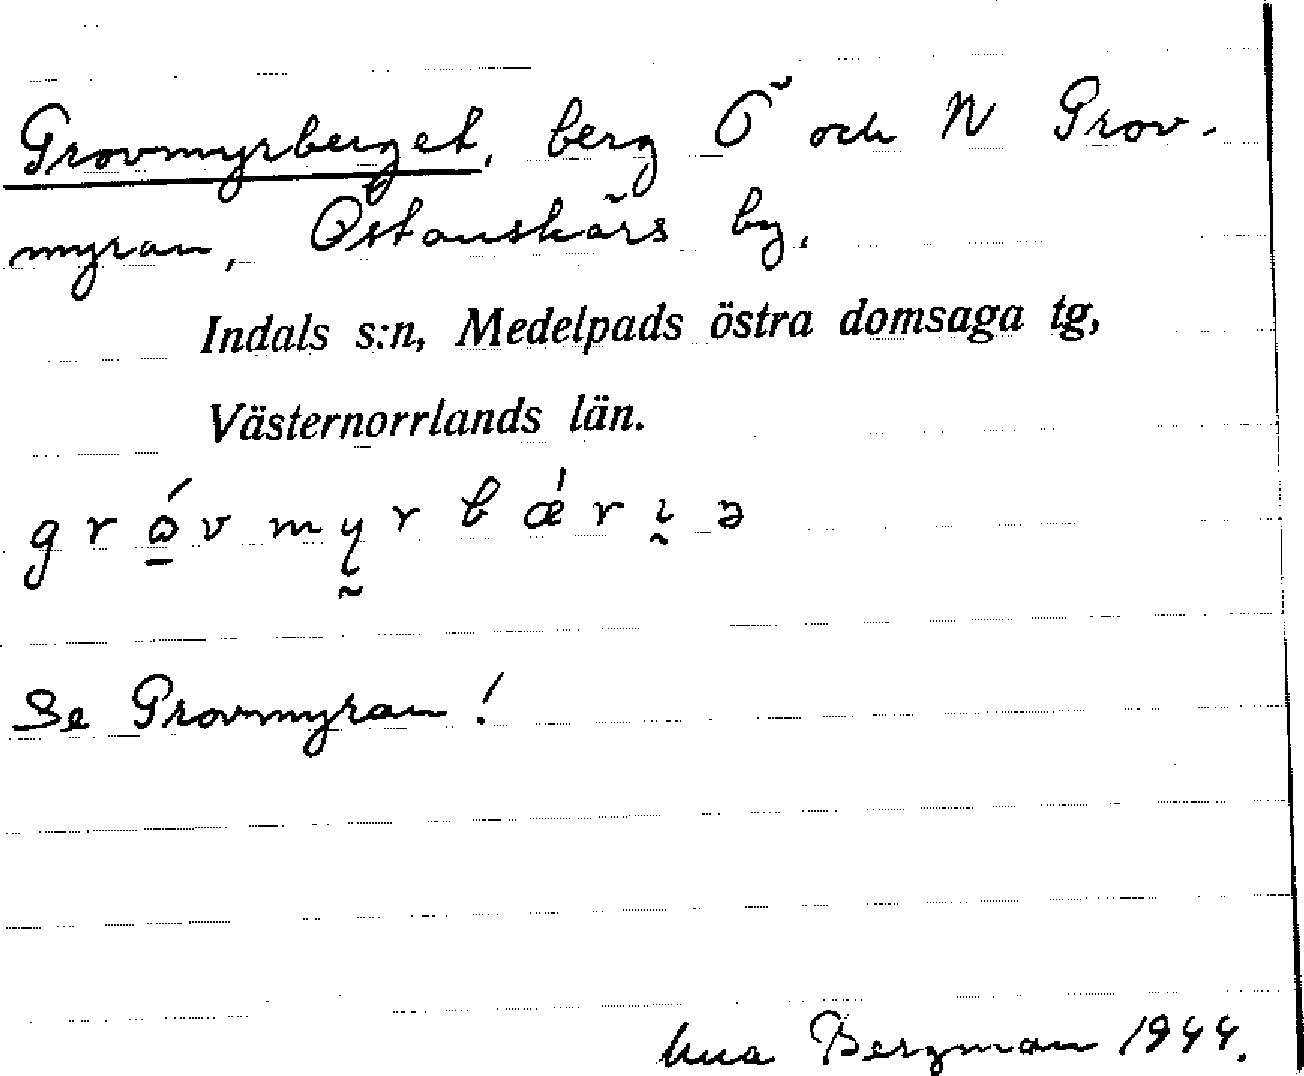 Grovmyrberget, berg Ö och N Grov-
myran, Östanskärs by.
Indals s:n, Medelpads östra domsaga tg,
Västernorrlands län.
Se Grovmyran!
Bergman 1944.